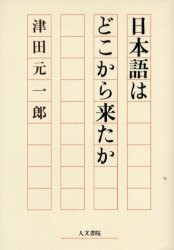 日本語は
どこから来たか
津田元一郎
人文書院